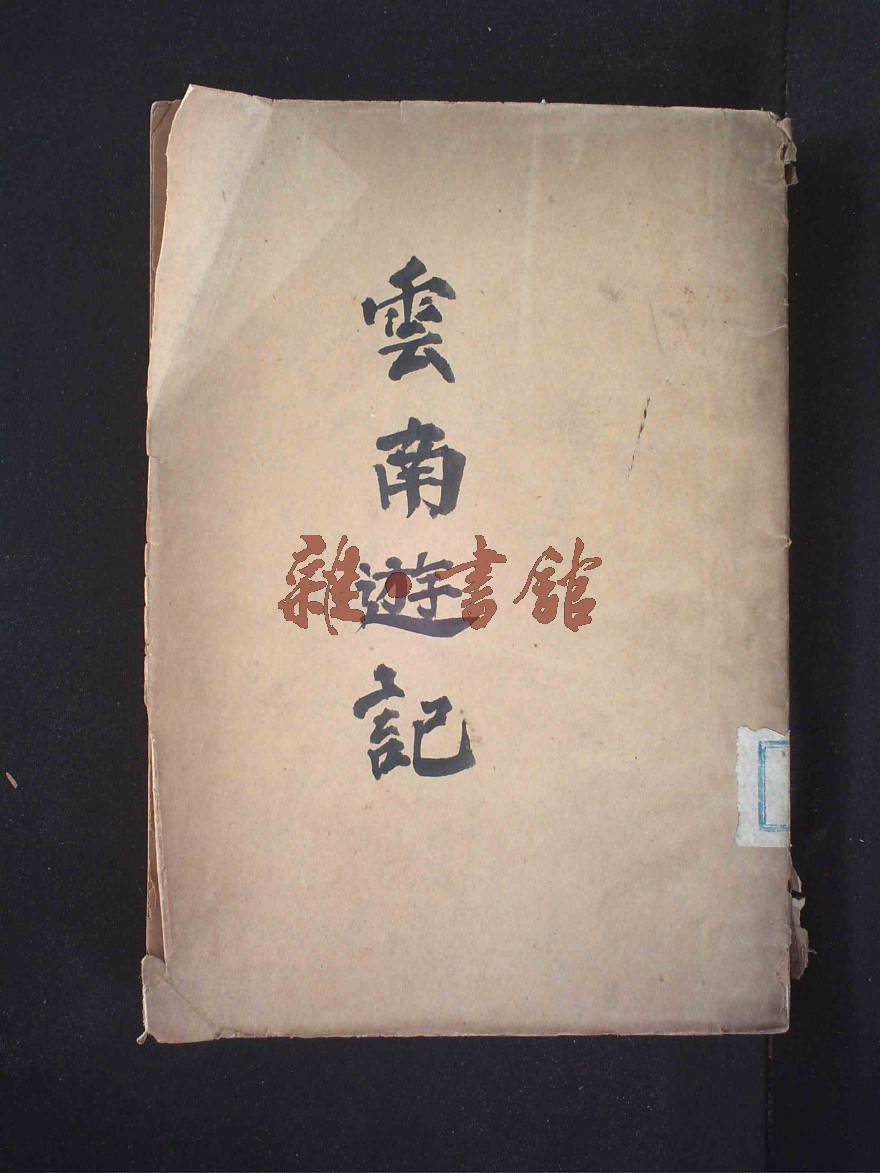 雲南遊記
雜·書館